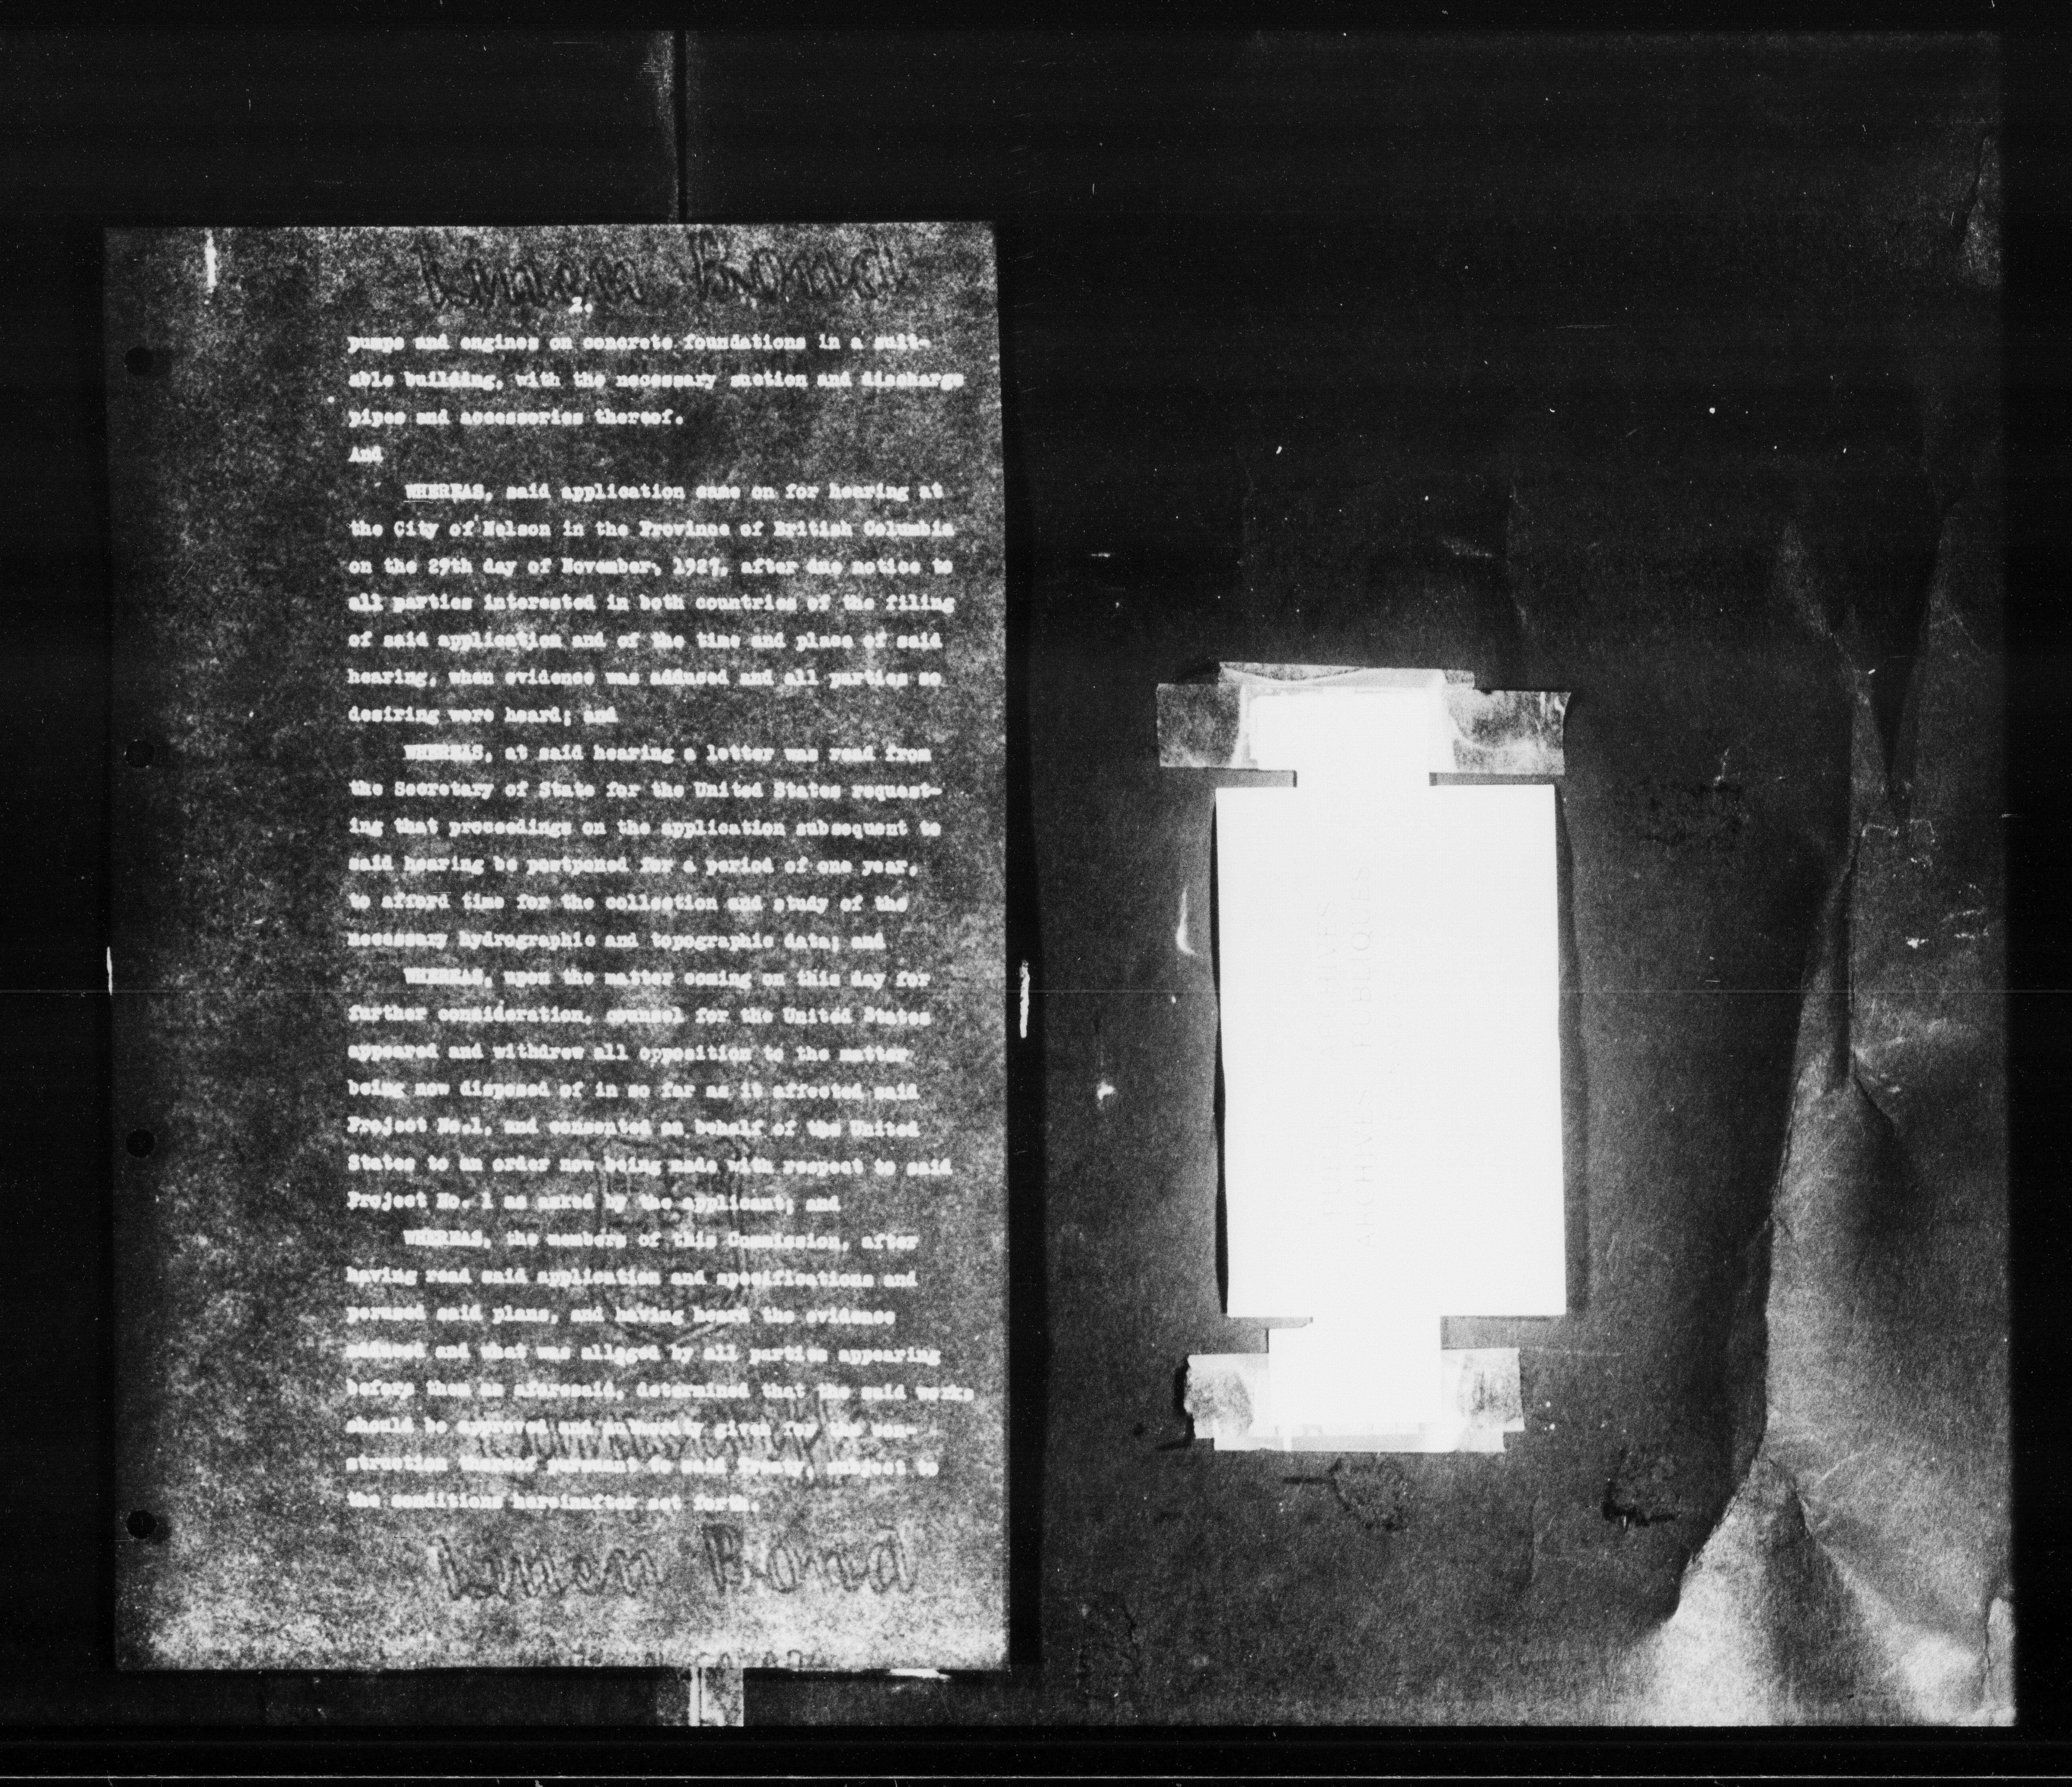 Linen Bond
2.
pumps and engines on concrete foundations in a suit-
able building, with the necessary suction and discharge
pipes and accessories thereof.
And
WHEREAS, said application came on for hearing at
the City of Nelson in the Province of British Columbia
on the 29th day of November, 1927, after due notice to
all parties interested in both countries of the filing
of said application and of the time and place of said
hearing, when evidence was adduced and all parties so
desiring were heard; and
WHEREAS, at said hearing a letter was read from
the Secretary of State for the United States request-
ing that proceedings on the application subsequent to
said hearing be postponed for a period of one year,
to afford time for the collection and study of the
necessary hydrographic and topographic data; and
WHEREAS, upon the matter coming on this day for
further consideration, counsel for the United States
appeared and withdrew all opposition to the matter
being now disposed of in so far as it affected said
Project No.1, and consented on behalf of the United
States to an order now being made with respect to said
Project No. 1 as asked by the applicant; and
WHEREAS, the members of this Commission, after
having read said application and specifications and
perused said plans, and having heard the evidence
adduced and what was alleged by all parties appearing
before them as aforesaid, determined that the said works
should be approved and authority given for the con-
struction thereof pursuant to said Treaty, subject to
the conditions hereinafter set forth.
Linen Bond
ARCHIVES
ARCHIVES PUBLIQUES